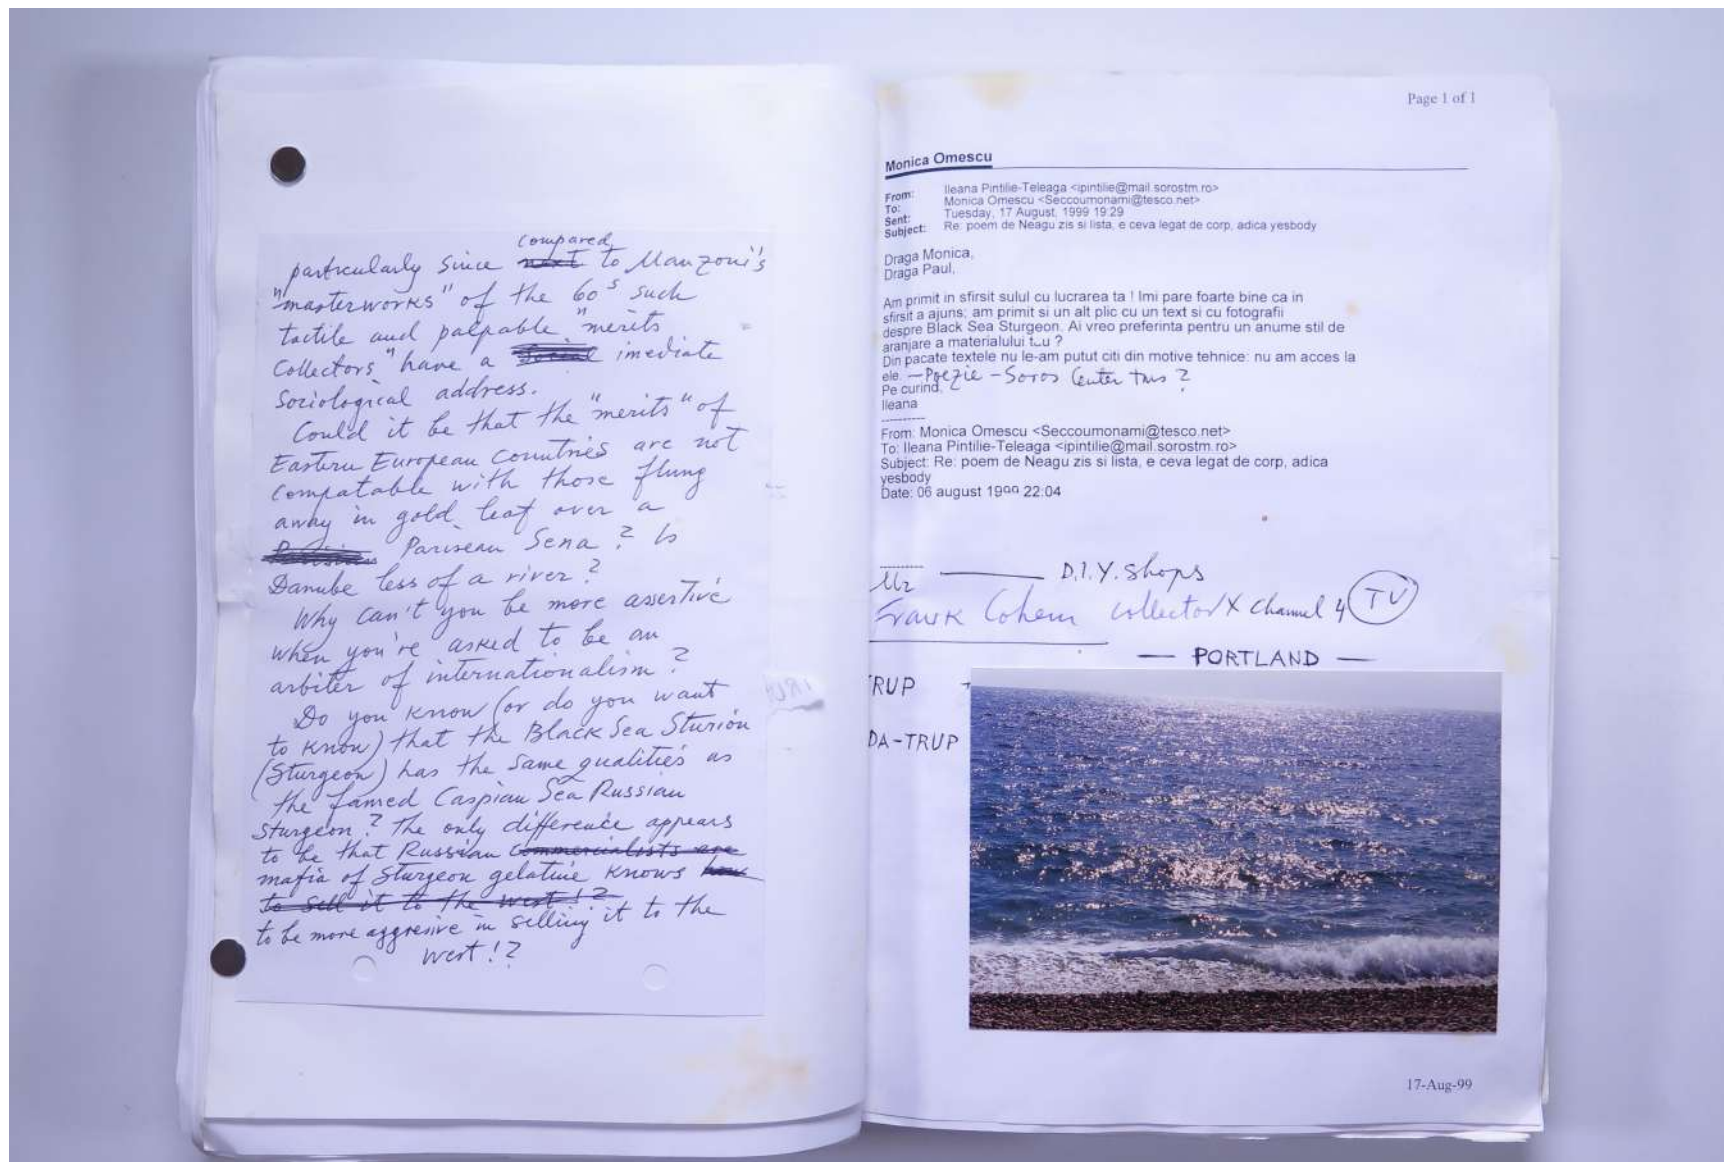 compared
particularly since next to Manzoni's
"masterworks" of the 60s such
tactile and palpable "merits
collectors" have a social imediate
sociological address.
Could it be that the "merits" of
Eastern European countries are not
compatable with those flung
away in gold leaf over a
Pariseau Sena? Is
Danube less of a river?
Why can't you be more assertive
when you're asked to be an
arbiter of internationalism?
Do you know (or do you want
to know) that the Black Sea Sturion
(Sturgeon) has the same qualities as
the famed Caspian Sea Russian
Sturgeon? The only difference appears
to be that Russian commercialists are
mafia of Sturgeon gelatine knows how
to sell it to the west!?
to be more aggresive in selling it to the
west!?
Page 1 of 1
Monica Omescu
From: Ileana Pintilie-Teleaga <ipintilie@mail.sorostm.ro>
To: Monica Omescu <Seccoumonami@tesco.net>
Sent: Tuesday, 17 August, 1999 19:29
Subject: Re: poem de Neagu zis si lista, e ceva legat de corp, adica yesbody
Draga Monica,
Draga Paul,
Am primit in sfirsit sulul cu lucrarea ta ! Imi pare foarte bine ca in
sfirsit a ajuns; am primit si un alt plic cu un text si cu fotografii
despre Black Sea Sturgeon. Ai vreo preferinta pentru un anume stil de
aranjare a materialului ?
Din pacate textele nu le-am putut citi din motive tehnice: nu am acces la
ele. - Poezie - Soros Center ?
Pe curind,
Ileana
----------
From: Monica Omescu <Seccoumonami@tesco.net>
To: Ileana Pintilie-Teleaga <ipintilie@mail.sorostm.ro>
Subject: Re: poem de Neagu zis si lista, e ceva legat de corp, adica
yesbody
Date: 06 august 1999 22:04
----------
Mr — D.I.Y. Shops
Frank Cohen collector X Channel 4 TV
— PORTLAND —
TRUP
DA-TRUP
17-Aug-99